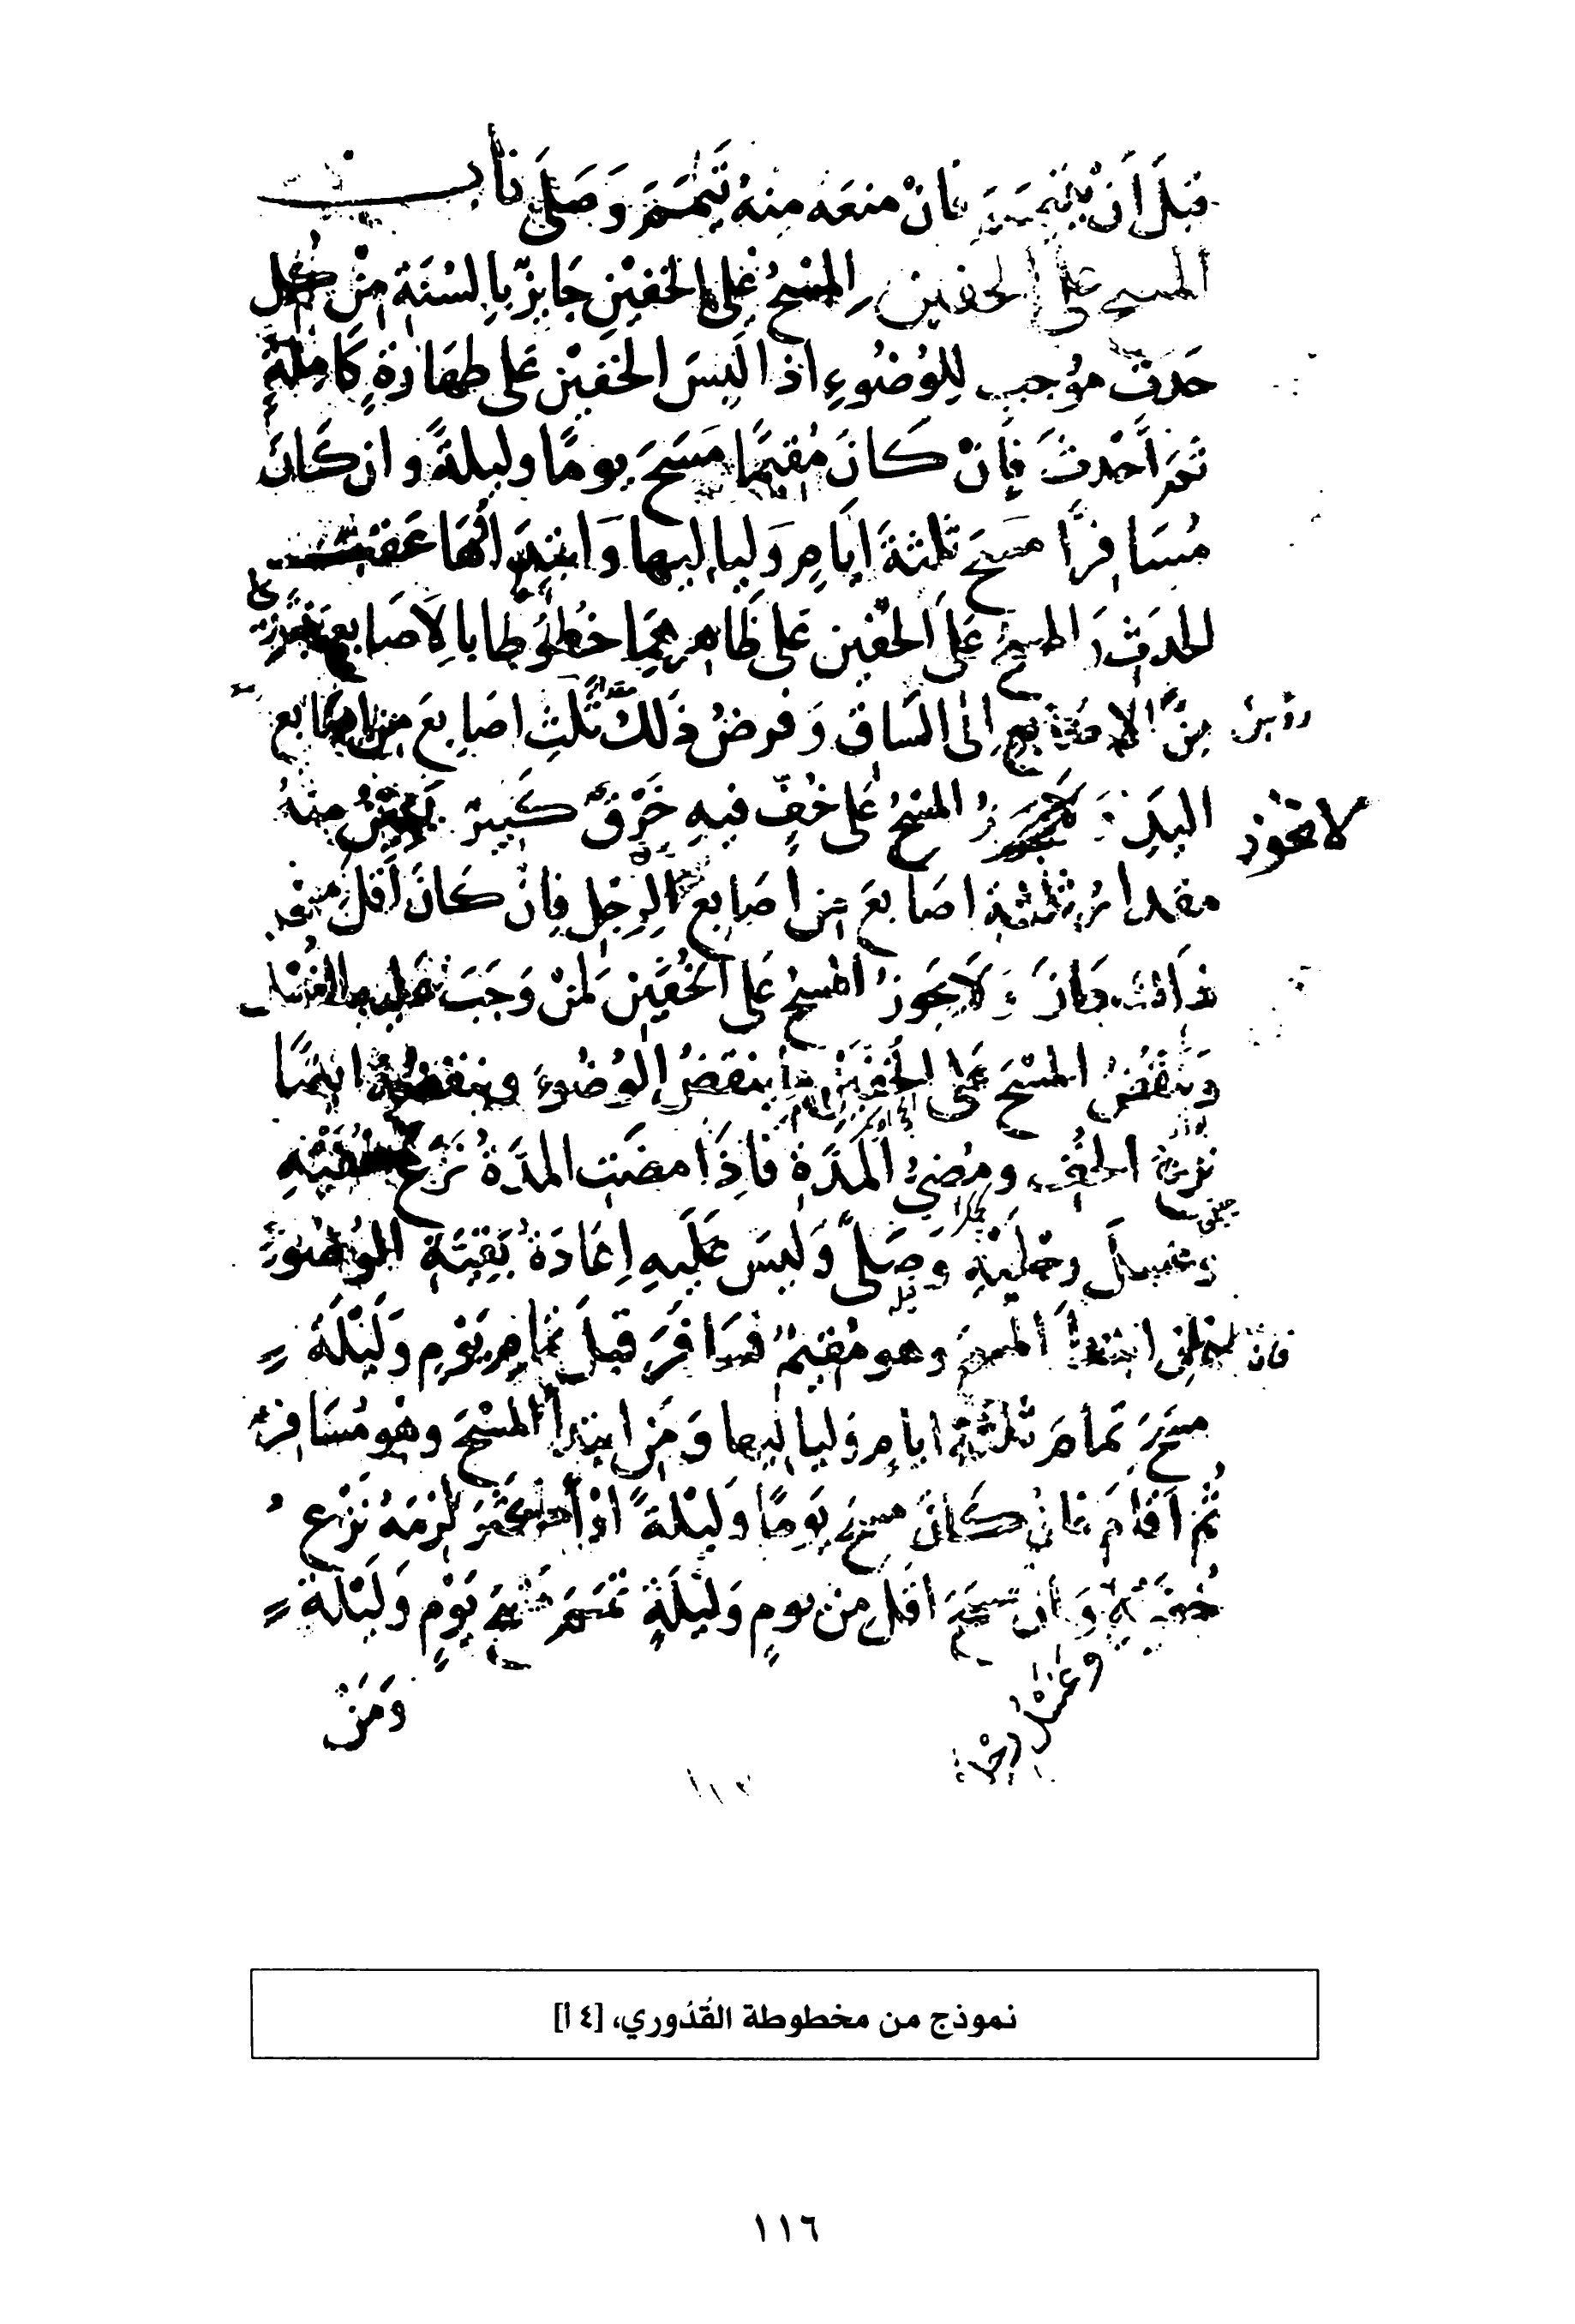 قبلَ أَن يتيممَ فان منعَه منهُ تيمّمَ وَصَلى بابُ
المسح على الخفين المسْحُ على الخفيْنِ جَايزٌ بالسُنَةِ مِنْ كُلِ
حَدَثٍ موُجب لِلوُضُوءِ اذا لَبِسَ الخفيْن عَلى طهَارةٍ كَامِلةٍ
ثمَ اَحْدثَ فَاِنْ كَانَ مُقيمًا مَسَحَ يومًا وليلةً وان كَانَ
مُسَافِرًا مسَحَ ثلثةَ ايَامٍ وَلياليها وَابتدَاؤهَا عَقيبَ
الحدَثِ وَالمسحُ عَلَى الخفّين عَلى ظَاهرهمَا خُطُوطا بالاَصَابع
من الاصَابع اِلى السَّاق وَفرضُ ذلكَ مقدار ثَلثِ اصَابعَ من اصَابع
اليَدِ وَ المسْحُ عَلى خُفٍّ فيهِ خَرْقٌ كَبيرٌ منهُ
لا يجوز
مقدارُ ثلثة اصَابعَ من أصَابع الرِجْلِ فاِنْ كانَ أَقلَ من
ذَلك جَازَ وَلَا يَجُوزُ المسحُ عَلى الخُفيَنِ لمنْ وَجَبَ عليه الغُسْل
وَينقُضُ المسْحَ عَلى الخُفيَنِ ما ينقضُ الوُضُوءَ وينقضُه ايضًا
نزعُ الخُفِ ومُضِيُ المدَّةِ فاِذَا مضَتِ المدَةُ نَزَعَ خُفيْهِ
وغسلَ رجْليْهِ وَصَلىَّ وَليسَ عَليهِ اِعَادَةُ بَقِيَةِ الوُضُوءِ
ومن ابتدأَ المسحَ وهو مُقيمٌ فسَافَرَ قبلَ تمامِ يَوْمٍ وَلَيْلَةٍ
مسَحَ تمامَ ثلثةِ ايامٍ وَلياليها وَمَن ابتدأَ المسْحَ وهْو مُسَافِرٌ
ثُم اَقامَ فان كَانَ مسحَ يَومًا وَليْلةً اوْ أكثرَ لزمَهُ نَزْعُ
خُفيْهِ وَان مسَحَ اقَل من يومٍ وَليْلَةٍ تممَ مسْحَ يَوْمٍ وَلَيْلَةٍ
وغسْل رجليه
وَمَنْ
نموذج من مخطوطة القُدُوري، [٤ أ]
١١٦